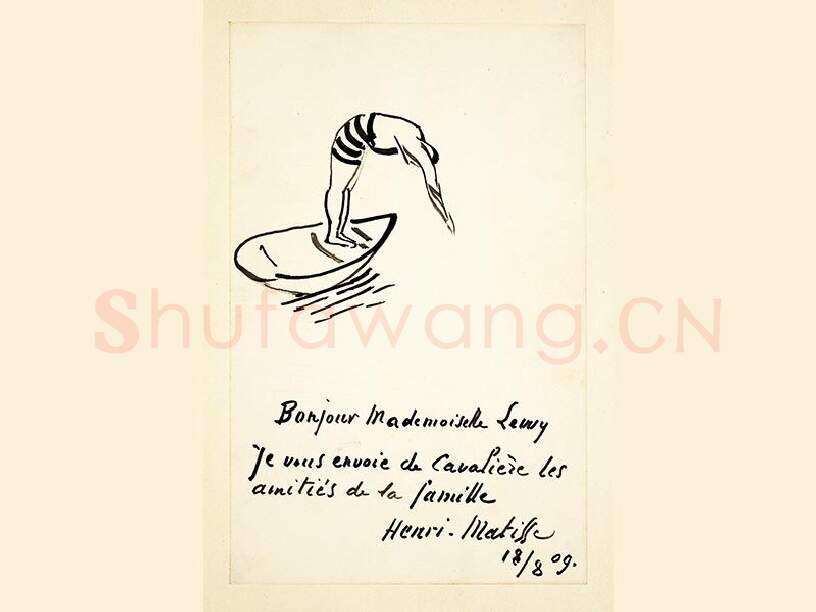 Shufawang.CN
Bonjour Mademoiselle Levvy
Je vous envoie de Cavalière les
amitiés de la famille
Henri-Matisse
18/8 09.